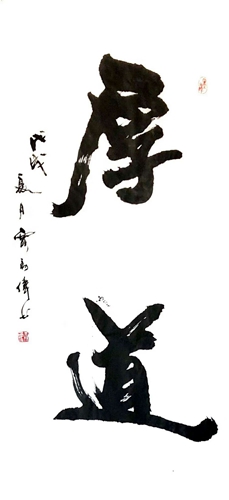 厚道
丙戌夏月